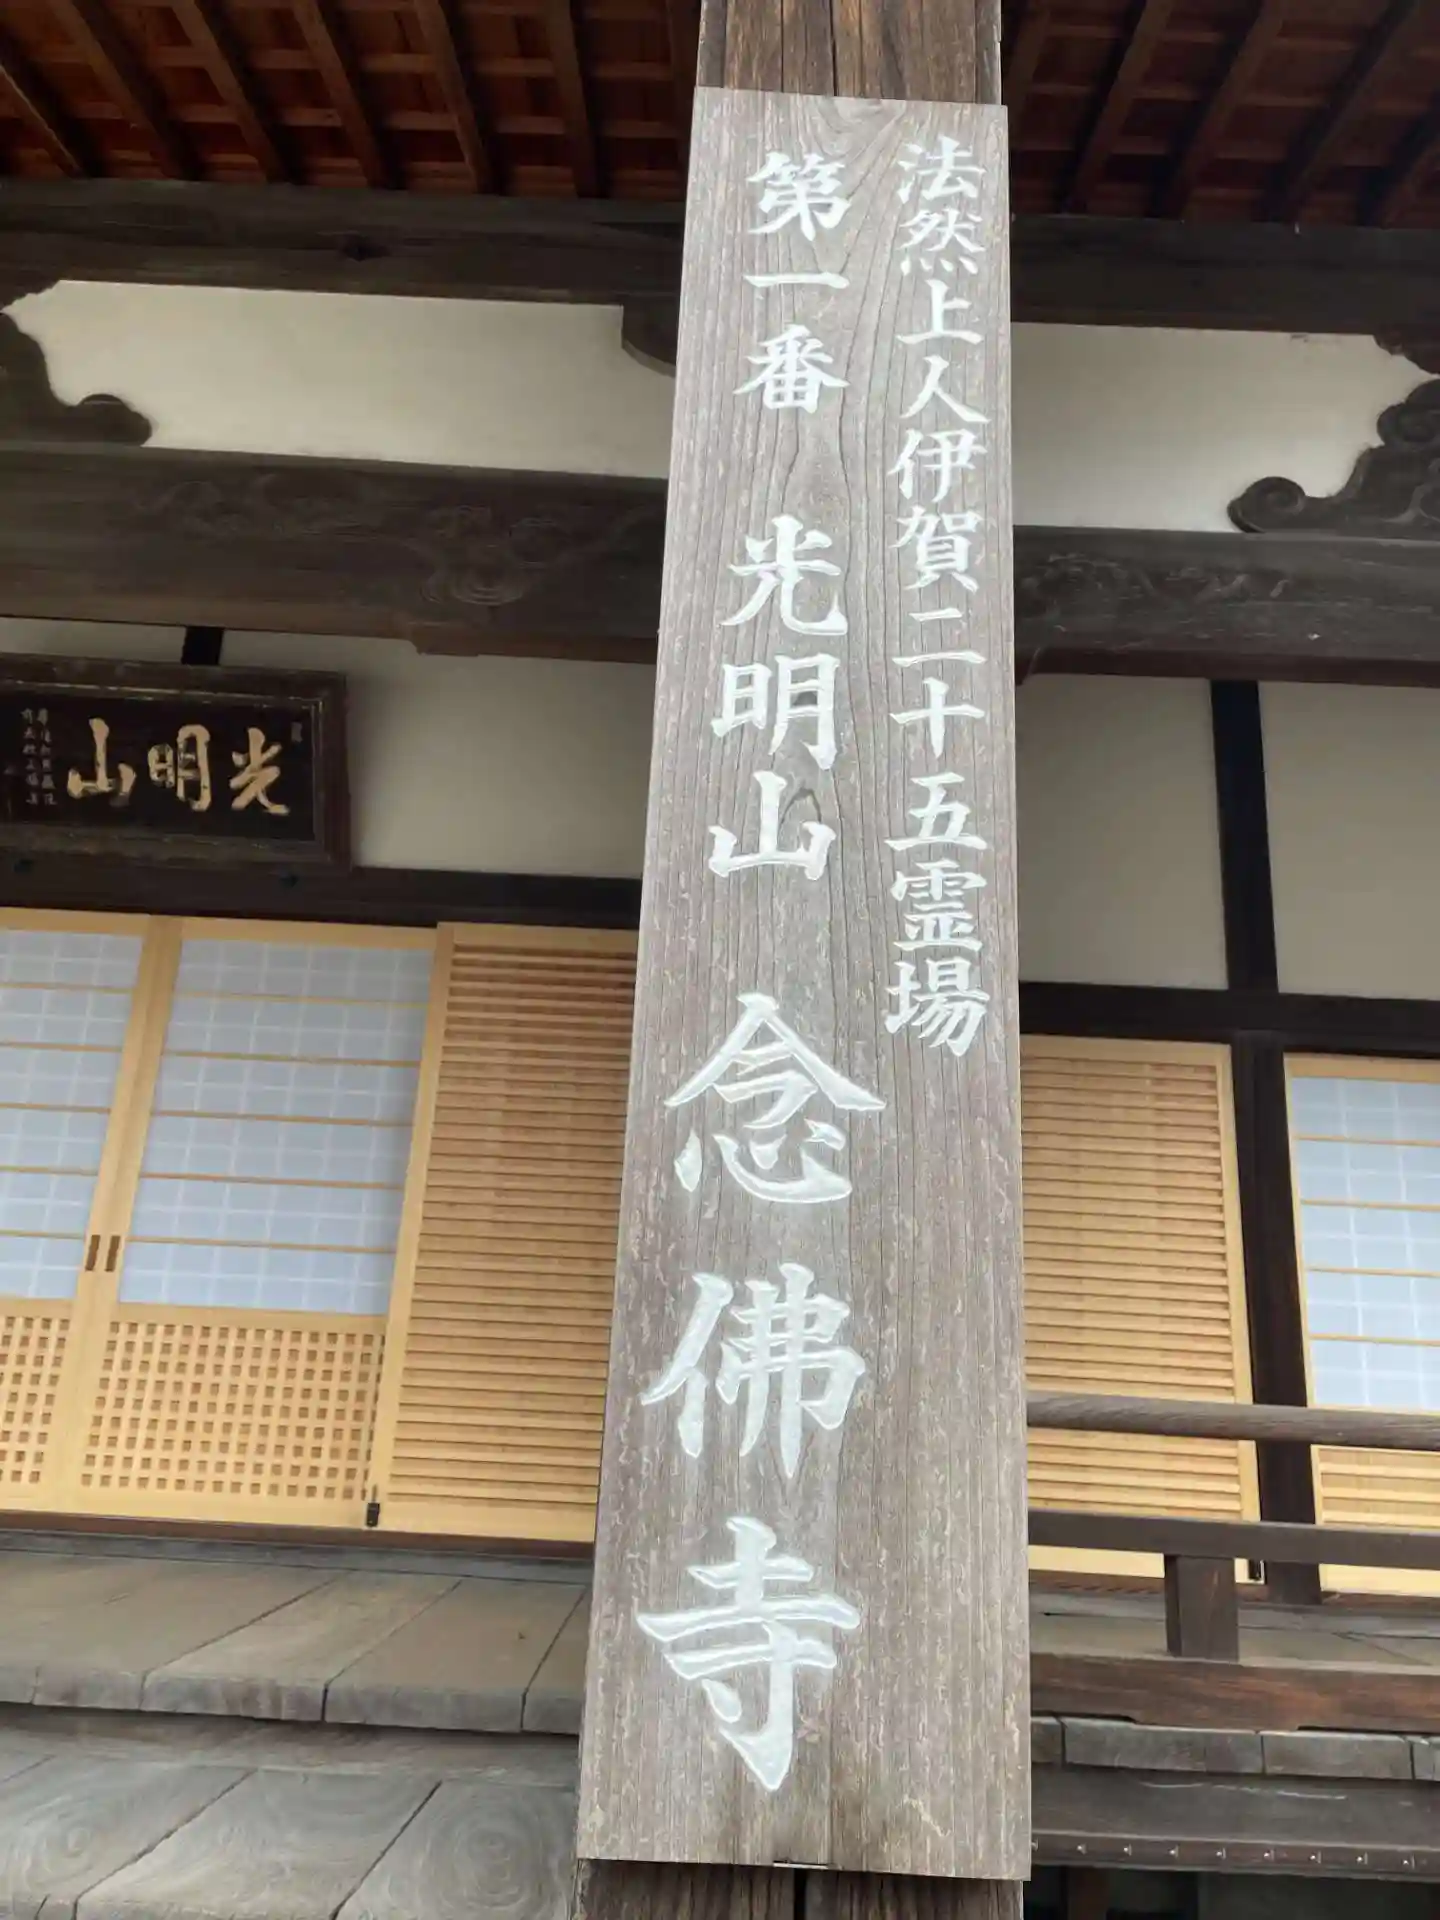 法然上人伊賀二十五霊場
第一番 光明山 念佛寺
光明山